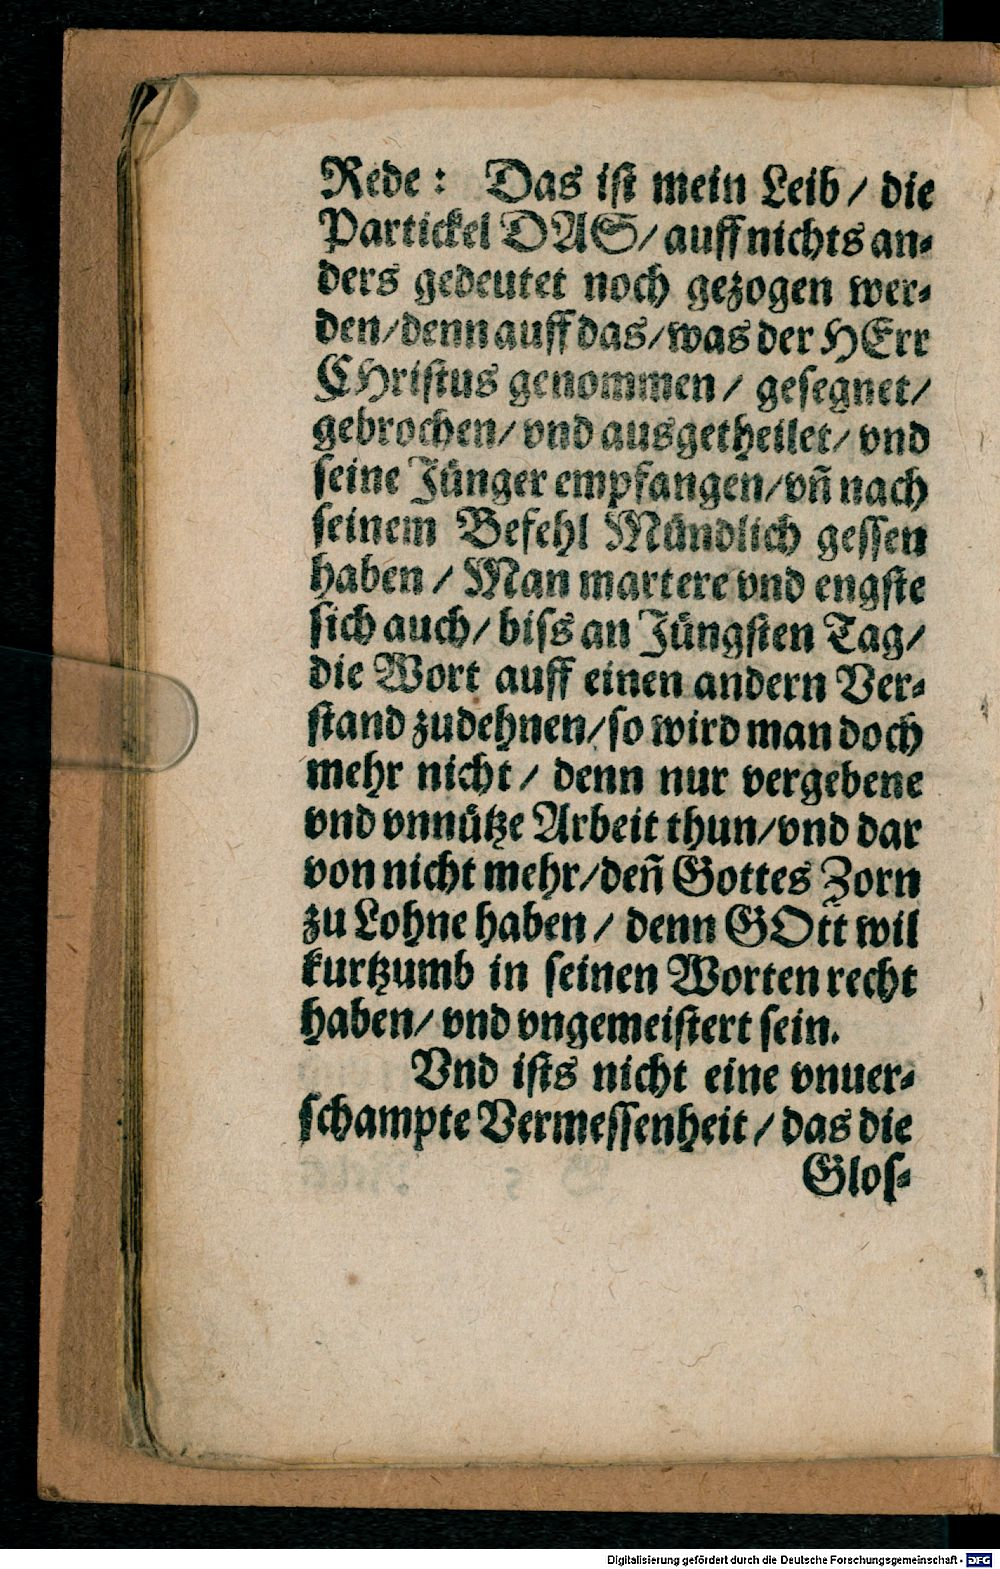 Rede: Das ist mein Leib/ die
Partickel DAS/ auff nichts an-
ders gedeutet noch gezogen wer-
den/denn auff das/was der HErr
CHristus genommen/ gesegnet/
gebrochen/ vnd ausgetheilet/ vnd
seine Jünger empfangen/vñ nach
seinem Befehl Mündlich gessen
haben/ Man martere vnd engste
sich auch/ biss an Jüngsten Tag/
die Wort auff einen andern Ver-
stand zudehnen/so wird man doch
mehr nicht/ denn nur vergebene
vnd vnnütze Arbeit thun/vnd dar
von nicht mehr/deñ Gottes Zorn
zu Lohne haben/ denn GOtt wil
kurtzumb in seinen Worten recht
haben/ vnd vngemeistert sein.
Vnd ists nicht eine vnuer-
schampte Vermessenheit/ das die
Glos-
Digitalisierung gefördert durch die Deutsche Forschungsgemeinschaft - DFG